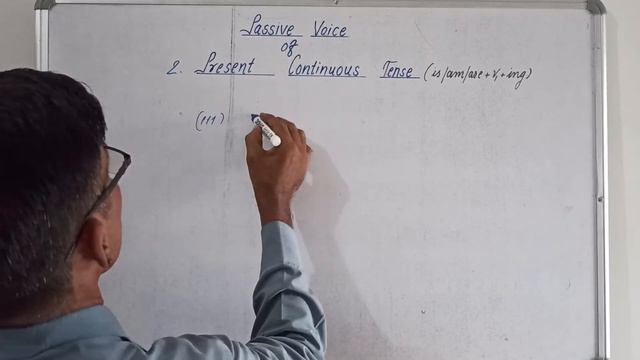 Passive Voice
of
2. Present Continuous Tense (is/am/are+V₁+ing)
(iii)